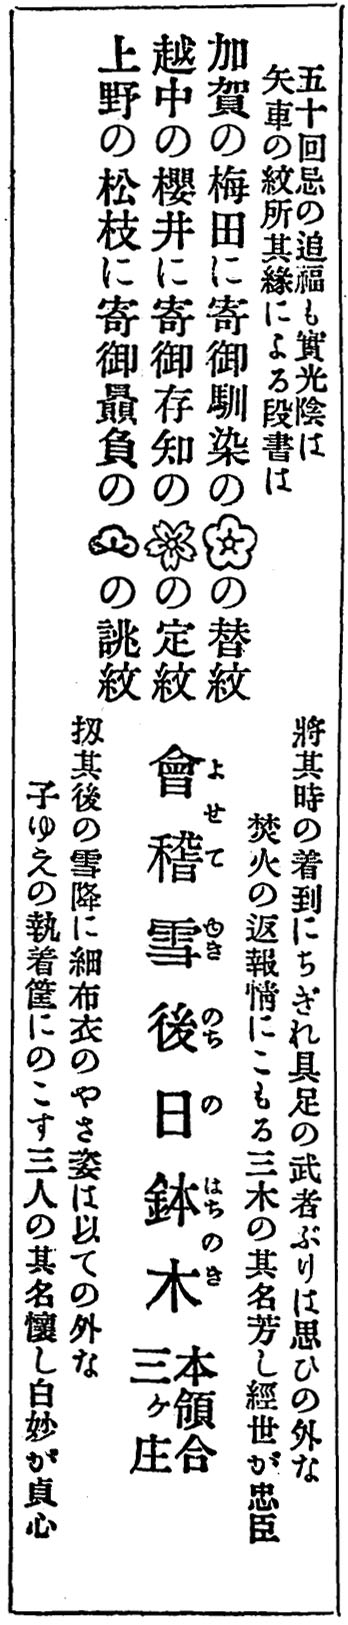 五十回忌の追福も實光陰は
矢車の紋所其緣による段書は
加賀の梅田に寄御馴染の の替紋
越中の櫻井に寄御存知の の定紋
上野の松枝に寄御贔負の の誂紋
將其時の着到にちぎれ具足の武者ぶりは思ひの外な
焚火の返報情にこもる三木の其名芳し經世が忠臣
會稽雪後日鉢木
よせてゆきのちのはちのき
本領合
三ケ庄
扨其後の雪降に細布衣のやさ姿は以ての外な
子ゆえの執着筐にのこす三人の其名懷し白妙が貞心